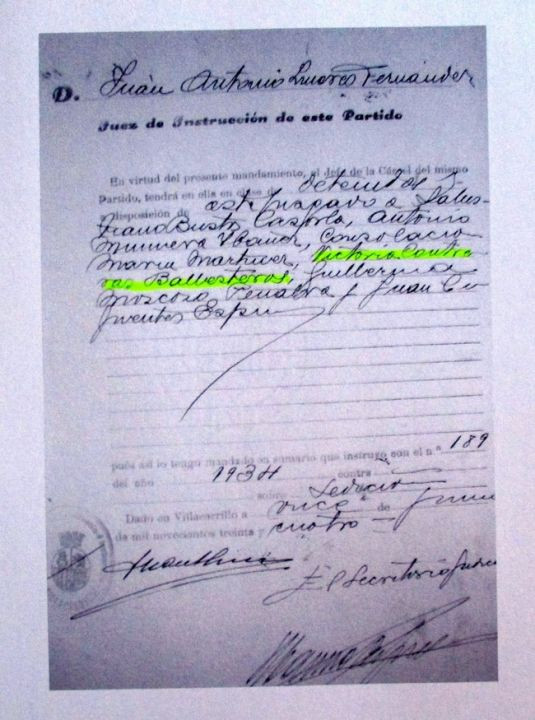 D. Juan Antonio Linares Fernández
Juez de Instrucción de este Partido
En virtud del presente mandamiento, el Jefe de la Cárcel del mismo
Partido, tendrá en ella en clase de detenidos
a disposición de este Juzgado a Salus-
tiano Busto Cazorla, Antonio
Munuera Ibáñez, Consolación
Marin Martinez, Victoria Contre
ras Ballesteros, Guillermina
Moscoso Penalva y Juan Ci
fuentes
pués así lo tengo mandado en sumario que instruyo con el nº 189
del año 1934 contra
sobre Sedición
Dado en Villacarrillo a once de Junio
de mil novecientos treinta y cuatro
El Secretario